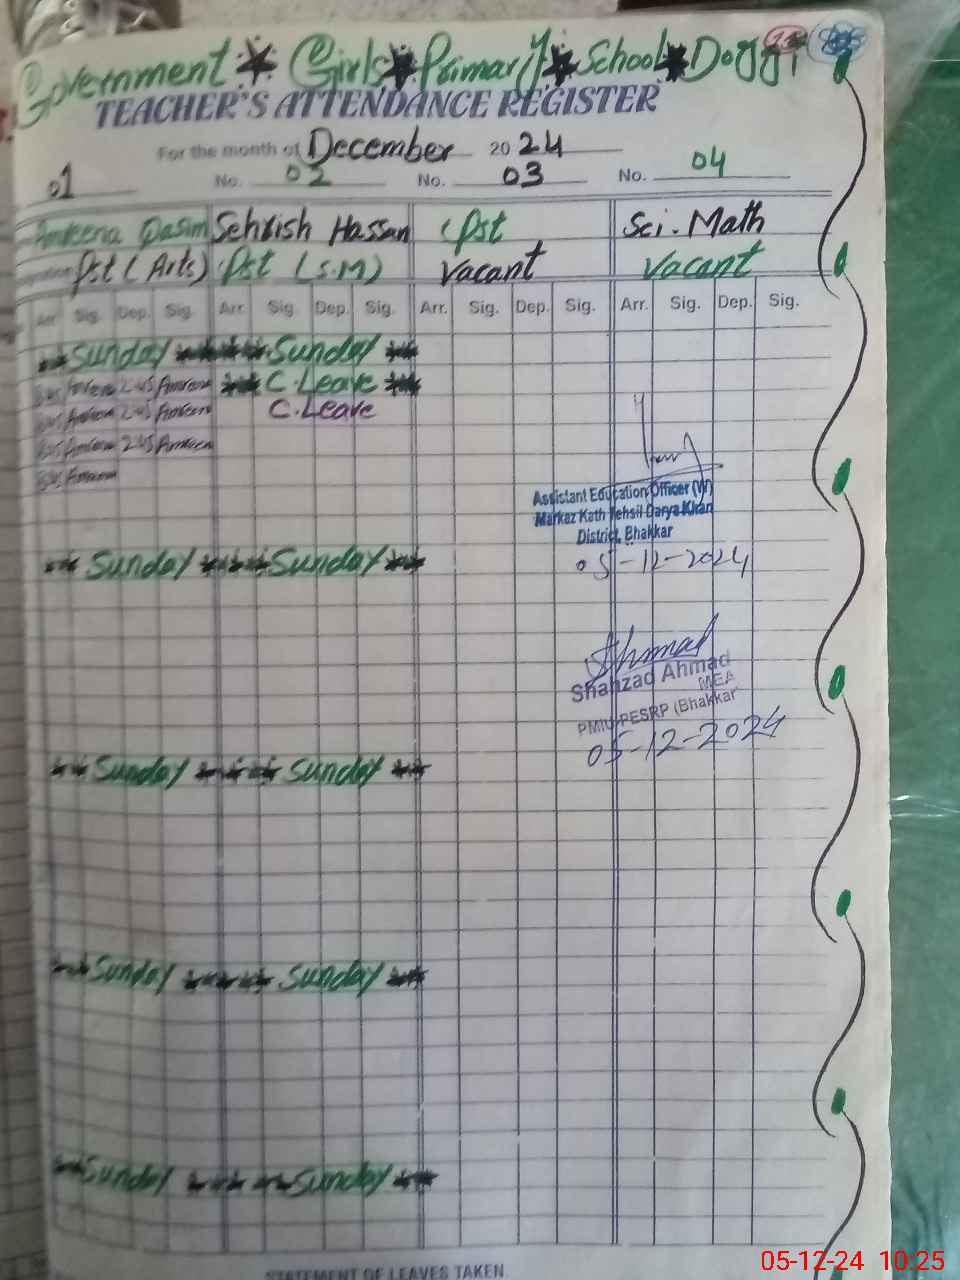 Government * Girls * Primary * School * Doggi
TEACHER'S ATTENDANCE REGISTER
For the month of December 2024
01 No. 02 No. 03 No. 04
Ameena Qasim Sehrish Hassan Pst Sci. Math
Pst (Arts) Pst (S.M) Vacant Vacant
Arr. Sig. Dep. Sig. Arr. Sig. Dep. Sig. Arr. Sig. Dep. Sig. Arr. Sig. Dep. Sig.
Sunday Sunday
2:45 C. Leave
2:45 C. Leave
2:45
Assistant Education Officer (W)
Markaz Kath Tehsil Darya Khan
District, Bhakkar
05-12-2024
Sunday Sunday
Ahmad
Shahzad Ahmad
MEA
PMIU-PESRP (Bhakkar)
05-12-2024
Sunday Sunday
Sunday Sunday
Sunday Sunday
STATEMENT OF LEAVES TAKEN.
05-12-24 10:25